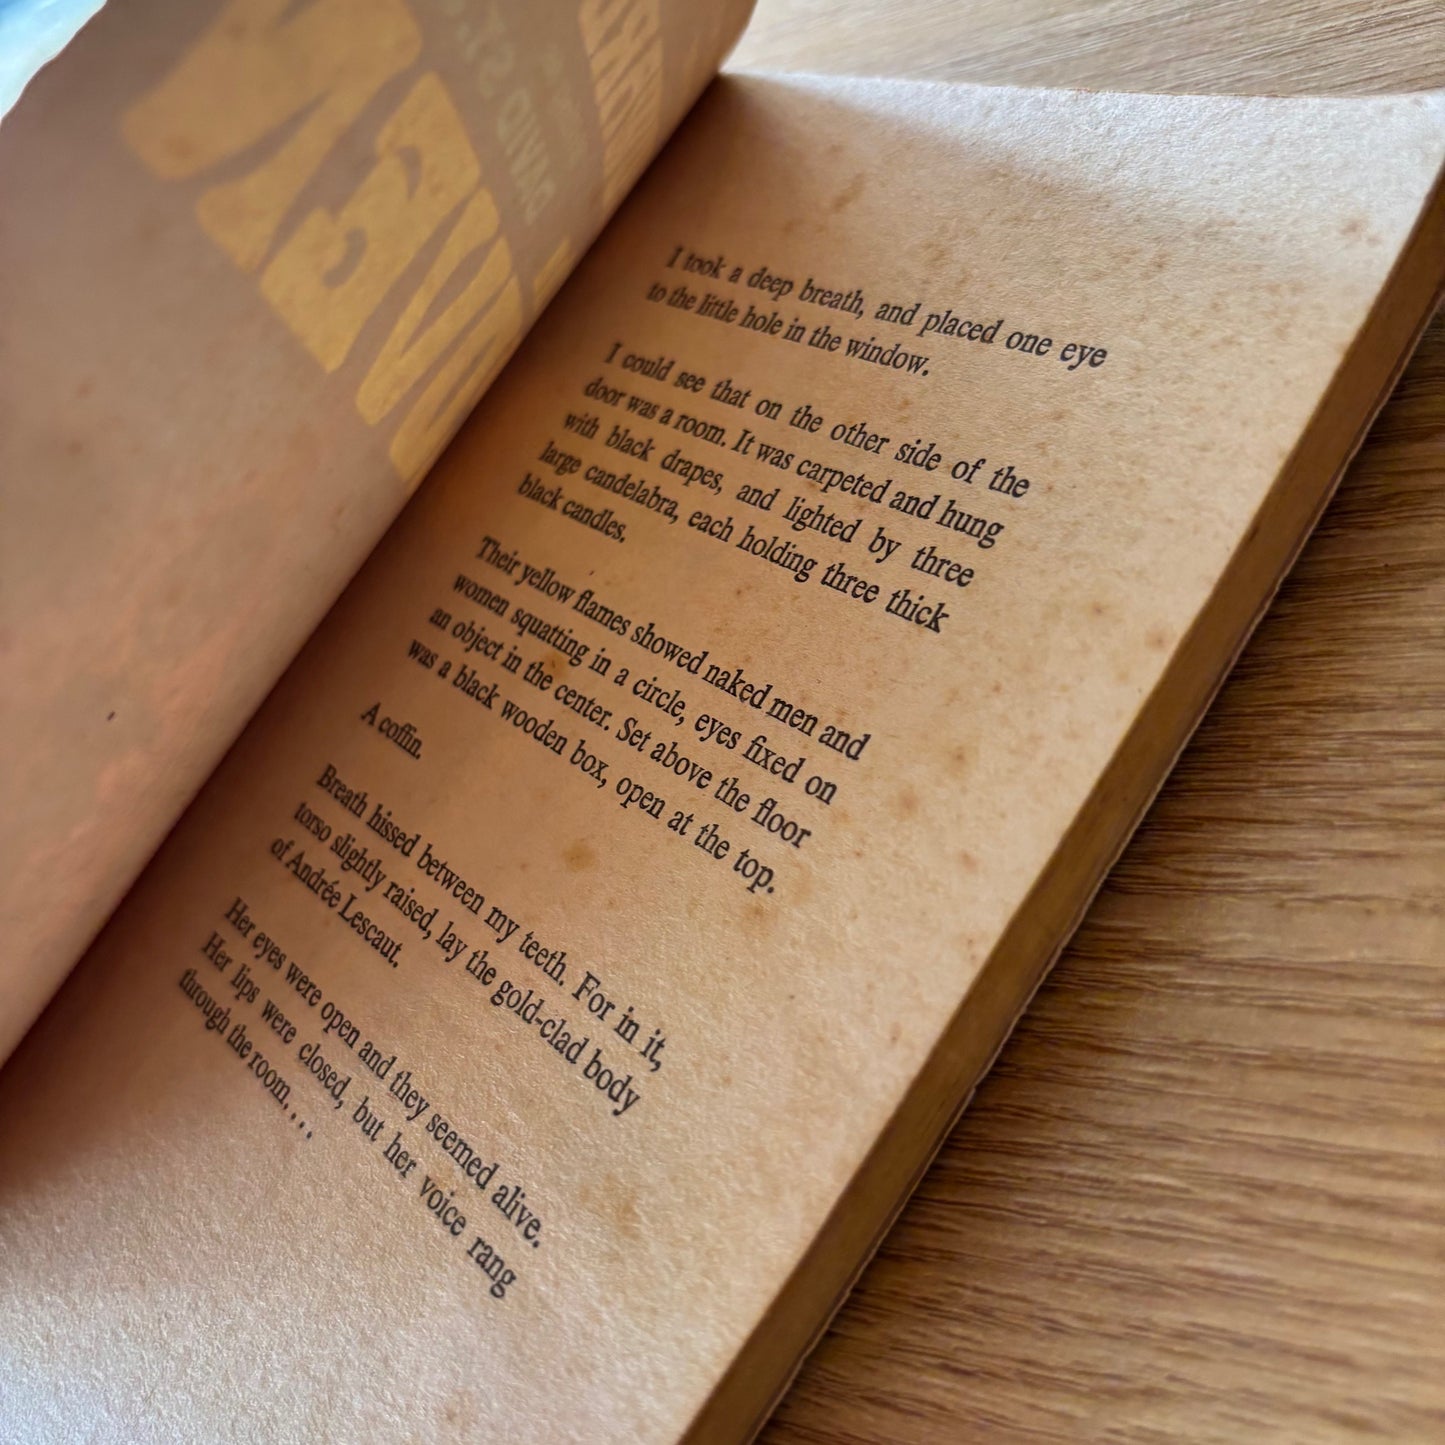 I took a deep breath, and placed one eye
to the little hole in the window.
I could see that on the other side of the
door was a room. It was carpeted and hung
with black drapes, and lighted by three
large candelabra, each holding three thick
black candles.
Their yellow flames showed naked men and
women squatting in a circle, eyes fixed on
an object in the center. Set above the floor
was a black wooden box, open at the top.
A coffin.
Breath hissed between my teeth. For in it,
torso slightly raised, lay the gold-clad body
of Andrée Lescaut.
Her eyes were open and they seemed alive.
Her lips were closed, but her voice rang
through the room. . . .